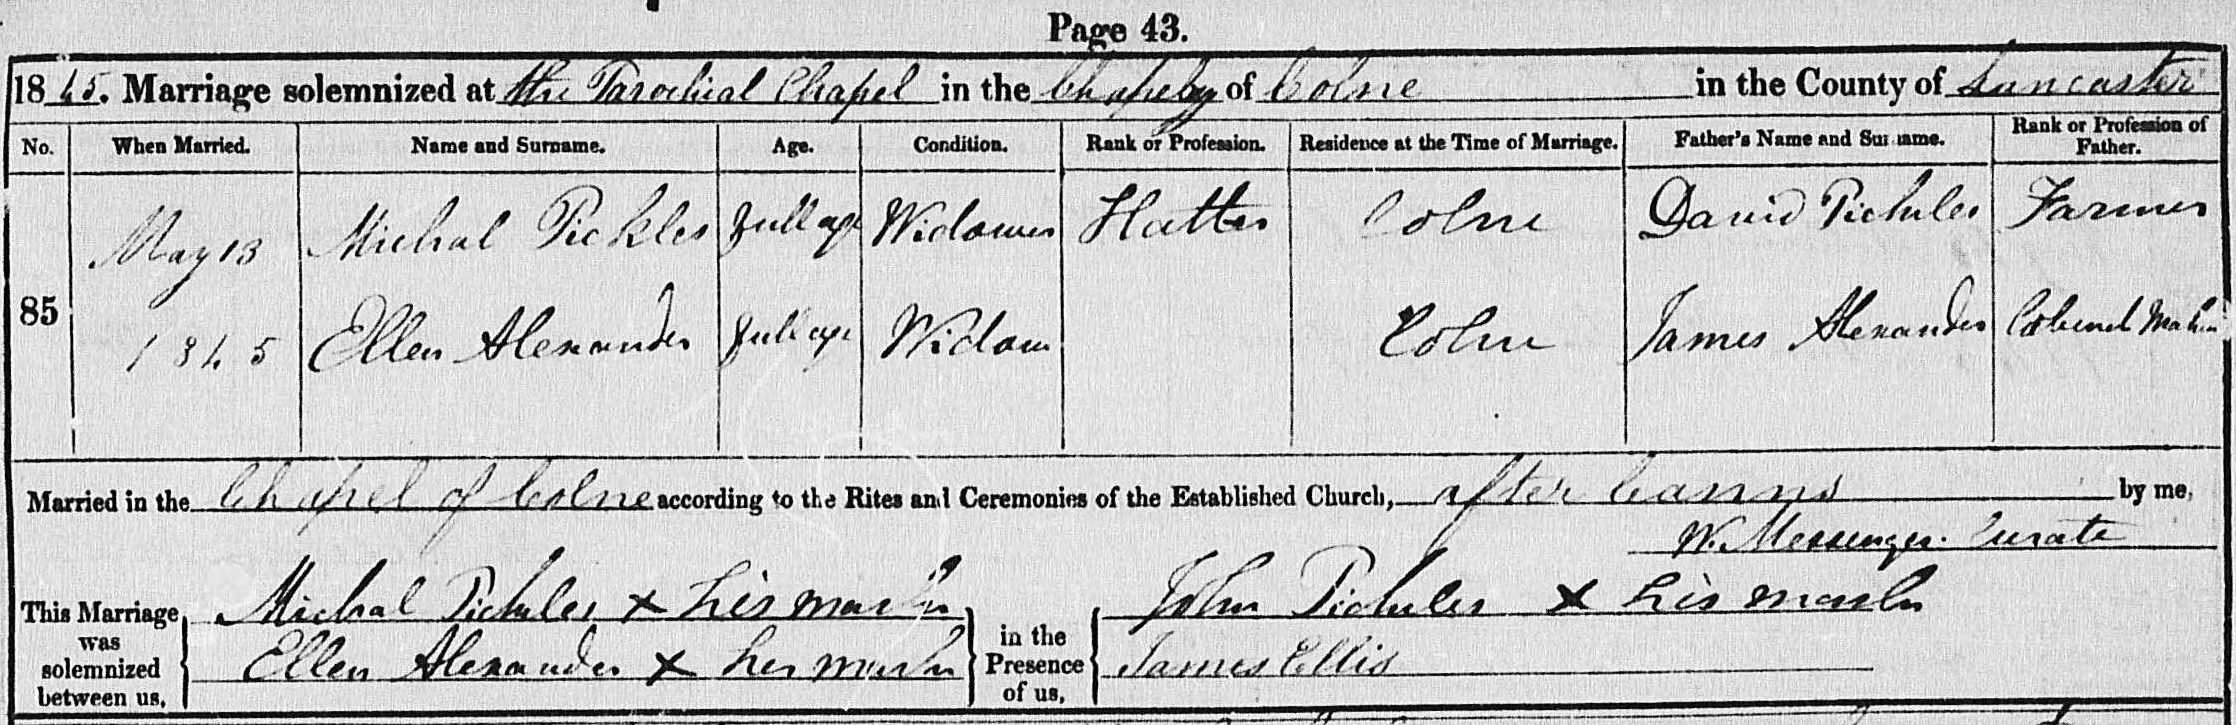 Page 43.
1845. Marriage solemnized at the Parochial Chapel in the Chapelry of Colne in the County of Lancaster
No. When Married. Name and Surname. Age. Condition. Rank or Profession. Residence at the Time of Marriage. Father's Name and Surname. Rank or Profession of Father.
May 13 Michal Pickles full age Widower Hatter Colne David Pickles Farmer
85
1845 Ellen Alexander full age Widow Colne James Alexander Cabinet Maker
Married in the Chapel of Colne according to the Rites and Ceremonies of the Established Church, after banns by me,
W. Messenger. Curate
This Marriage was solemnized between us, Michal Pickles x his mark
Ellen Alexander x her mark
in the Presence of us, John Pickles x his mark
James Ellis